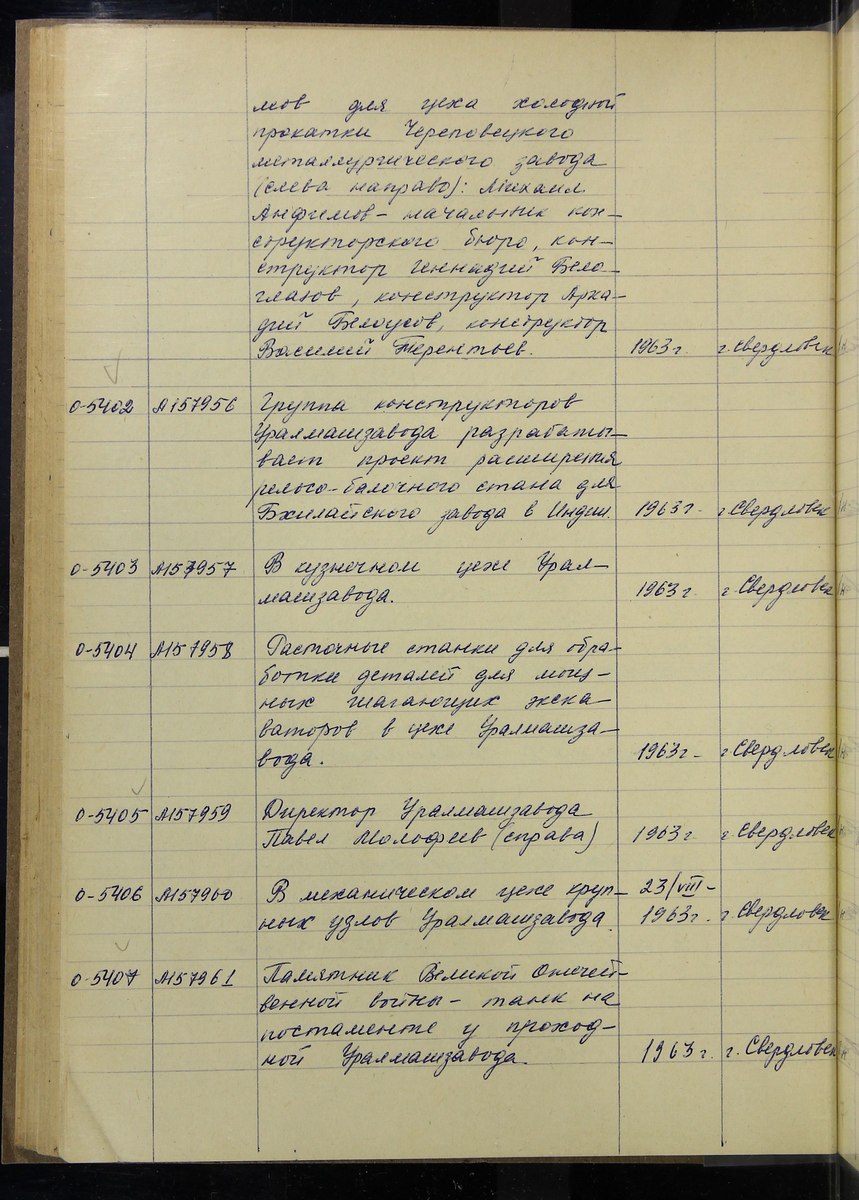 мов для цеха холодной
прокатки Череповецкого
металлургического завода
(слева направо): Михаил
Анфимов - начальник кон-
структорского бюро, кон-
структор Геннадий Бело-
глазов, конструктор Арка-
дий Белоусов, конструктор
Василий Терентьев. 1963 г. г. Свердловск
0-5402 А157956 Группа конструкторов
Уралмашзавода разрабаты-
вает проект расширения
рельсо-балочного стана для
Бхилайского завода в Индии. 1963 г. г. Свердловск
0-5403 А157957 В кузнечном цехе Урал-
машзавода. 1963 г. г. Свердловск
0-5404 А157958 Расточные станки для обра-
ботки деталей для мощ-
ных шагающих экска-
ваторов в цехе Уралмашза-
вода. 1963 г. г. Свердловск
0-5405 А157959 Директор Уралмашзавода
Павел Малофеев (справа) 1963 г. г. Свердловск
0-5406 А157960 В механическом цехе круп- 23/VIII-
ных узлов Уралмашзавода. 1963 г. г. Свердловск
0-5407 А157961 Памятник Великой Отечест-
венной войны - танк на
постаменте у проход-
ной Уралмашзавода. 1963 г. г. Свердловск